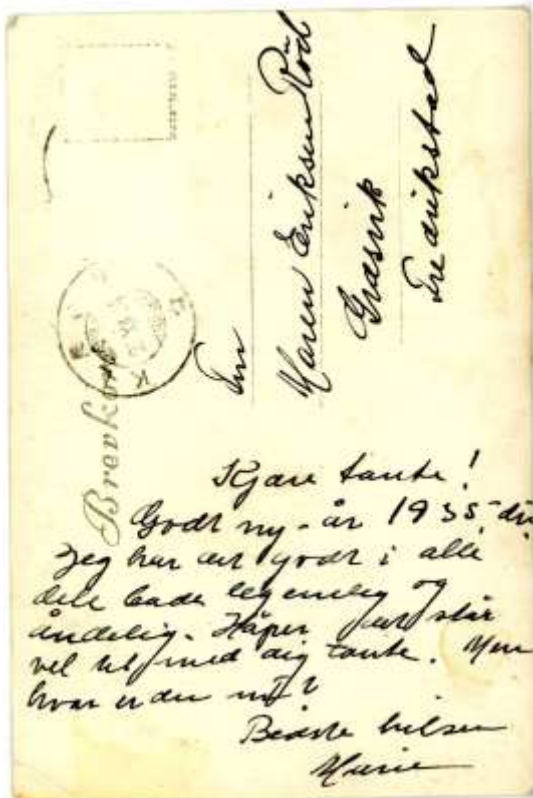 Brevkort
Fru
Maren Eriksen Rød
Gråsvik
Fredrikstad
Kjære tante!
Godt ny-år 1935
Jeg har det godt i alle
dele både legemlig og
åndelig. Håper det står
vel til med dig tante. Men
hvor er du nu?
Bedste hilsen
Marie